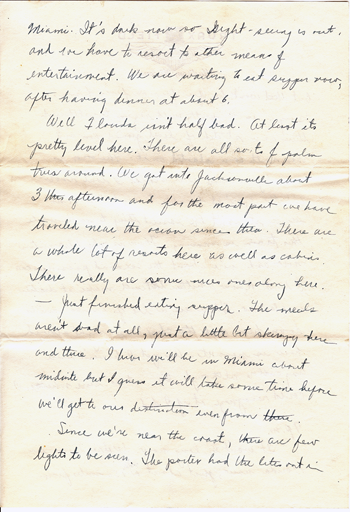 Miami. It's dark now so sight-seeing is out,
and we have to resort to other means of
entertainment. We are waiting to eat supper now,
after having dinner at about 6.
Well Florida isn't half bad. At least its
pretty level here. There are all sorts of palm
trees around. We got into Jacksonville about
3 this afternoon and for the most part we have
traveled near the ocean since then. There are
a whole lot of resorts here as well as cabins.
There really are some nices ones along here.
— Just finished eating supper. The meals
aren't bad at all, just a little bit skimpy here
and there. I hear we'll be in Miami about
midnite but I guess it will take some time before
we'll get to our destination even from there.
Since we're near the coast, there are few
lights to be seen. The porter had the lites out in